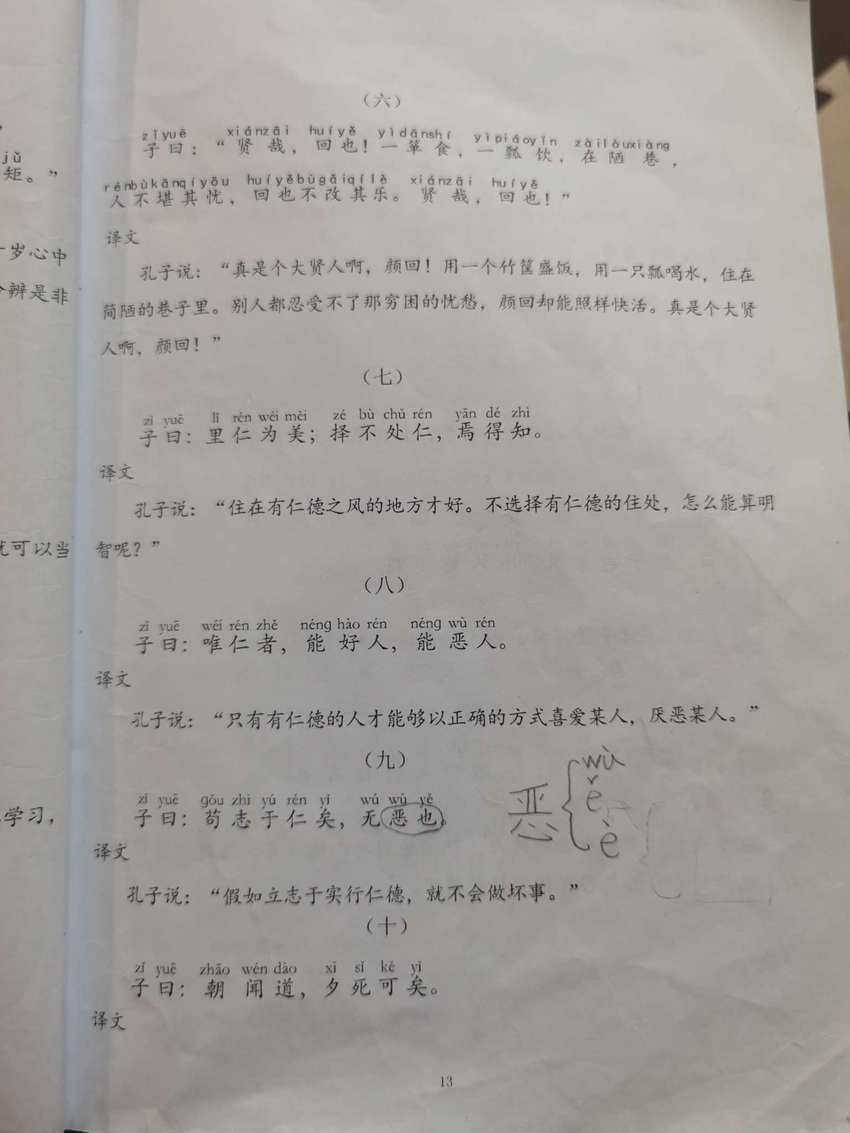 jǔ
矩。”
岁心中
辨是非
可以当
学习，
（六）
zǐyuē xiánzāi huíyě yìdānshí yìpiáoyǐn zàilòuxiàng
子曰：“贤哉，回也！一箪食，一瓢饮，在陋巷，
rénbùkānqíyōu huíyěbùgǎiqílè xiánzāi huíyě
人不堪其忧，回也不改其乐。贤哉，回也！”
译文
孔子说：“真是个大贤人啊，颜回！用一个竹筐盛饭，用一只瓢喝水，住在
简陋的巷子里。别人都忍受不了那穷困的忧愁，颜回却能照样快活。真是个大贤
人啊，颜回！”
（七）
zǐ yuē lǐ rén wéi měi zé bù chǔ rén yān dé zhì
子曰：里仁为美；择不处仁，焉得知。
译文
孔子说：“住在有仁德之风的地方才好。不选择有仁德的住处，怎么能算明
智呢？”
（八）
zǐ yuē wéi rén zhě néng hào rén néng wù rén
子曰：唯仁者，能好人，能恶人。
译文
孔子说：“只有有仁德的人才能够以正确的方式喜爱某人，厌恶某人。”
（九）
zǐ yuē gǒu zhì yú rén yǐ wú wù yě
子曰：苟志于仁矣，无恶也。
恶 wù ě è
译文
孔子说：“假如立志于实行仁德，就不会做坏事。”
（十）
zǐ yuē zhāo wén dào xī sǐ kě yǐ
子曰：朝闻道，夕死可矣。
译文
13